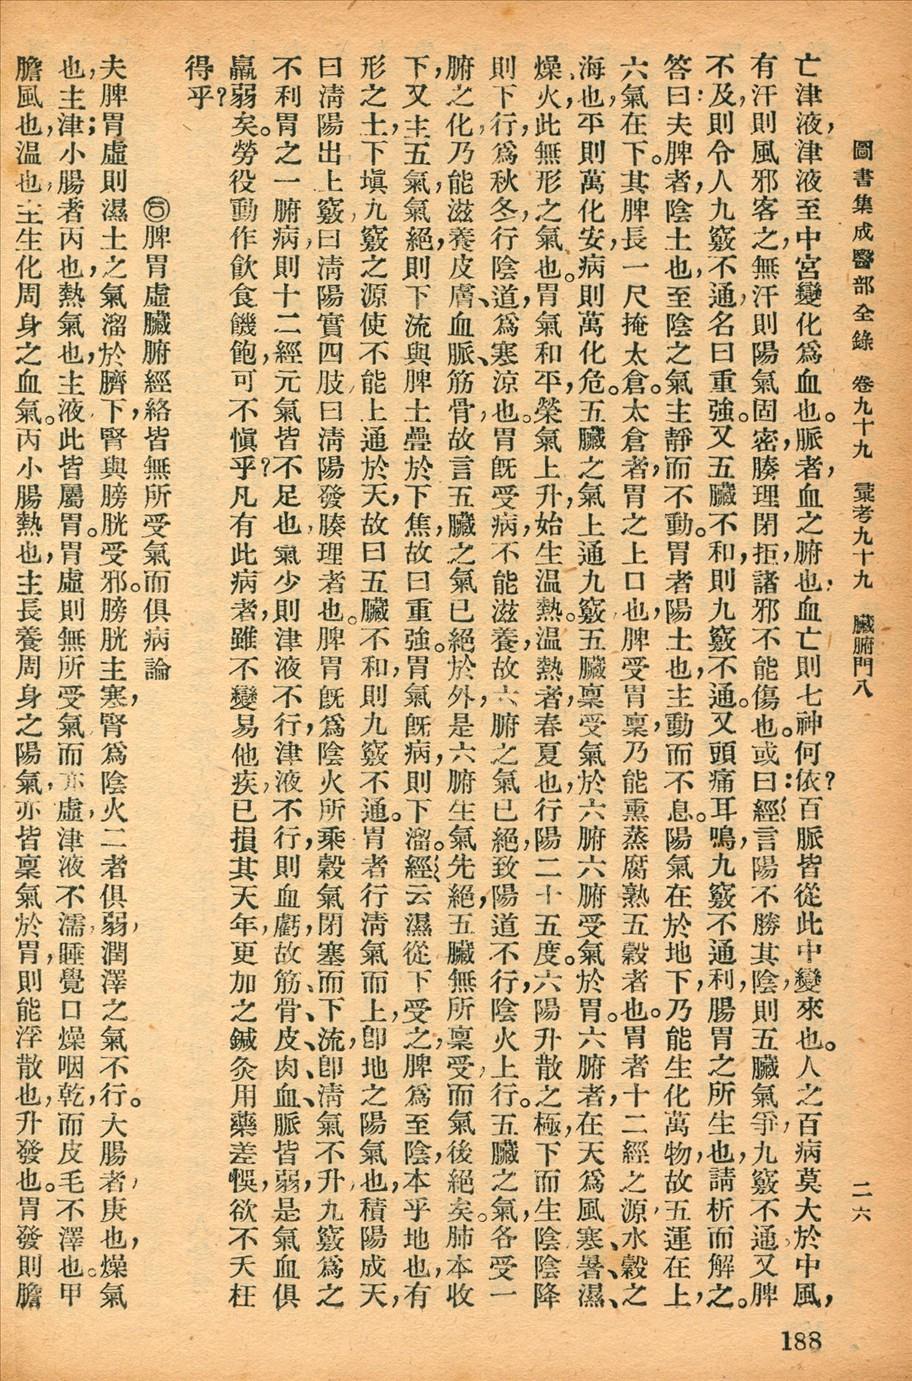 圖書集成醫部全錄　卷九十九　彙考九十九　臟腑門八　二六
亡津液，津液至中宮變化爲血也。脈者，血之腑也，血亡則七神何依？百脈皆從此中變來也。人之百病莫大於中風，
有汗則風邪客之，無汗則陽氣固密，腠理閉拒，諸邪不能傷也。或曰：經言陽不勝其陰，則五臟氣爭，九竅不通；又脾
不及，則令人九竅不通，名曰重強。又五臟不和，則九竅不通。又頭痛耳鳴，九竅不通利，腸胃之所生也，請析而解之。
答曰：夫脾者，陰土也，至陰之氣主靜而不動。胃者陽土也，主動而不息。陽氣在於地下，乃能生化萬物，故五運在上，
六氣在下。其脾長一尺掩太倉。太倉者，胃之上口也，脾受胃稟，乃能熏蒸腐熟五穀者也。胃者十二經之源，水穀之
海也，平則萬化安，病則萬化危。五臟之氣上通九竅，五臟稟受氣於六腑，六腑受氣於胃。六腑者，在天爲風、寒、暑、濕、
燥、火，此無形之氣也。胃氣和平，榮氣上升，始生溫熱。溫熱者，春夏也，行陽二十五度。六陽升散之極，下而生陰，陰降
則下行，爲秋冬，行陰道，爲寒涼也。胃旣受病，不能滋養，故六腑之氣已絕，致陽道不行，陰火上行。五臟之氣，各受一
腑之化，乃能滋養皮膚、血脈、筋骨，故言五臟之氣已絕於外，是六腑生氣先絕，五臟無所稟受，而氣後絕矣。肺本收
下，又主五氣，氣絕則下流，與脾土疊於下焦，故曰重強。胃氣旣病，則下溜。經云濕從下受之，脾爲至陰，本乎地也，有
形之土，下塡九竅之源，使不能上通於天，故曰五臟不和，則九竅不通。胃者行淸氣而上，卽地之陽氣也，積陽成天，
曰淸陽出上竅，曰淸陽實四肢，曰淸陽發腠理者也。脾胃旣爲陰火所乘，穀氣閉塞而下流，卽淸氣不升，九竅爲之
不利。胃之一腑病，則十二經元氣皆不足也。氣少則津液不行，津液不行，則血虧，故筋、骨、皮、肉、血、脈皆弱，是氣血俱
羸弱矣。勞役動作，飮食饑飽，可不愼乎？凡有此病者，雖不變易他疾，已損其天年，更加之鍼灸用藥差悞，欲不夭枉
得乎？
㊄脾胃虛臟腑經絡皆無所受氣而俱病論
夫脾胃虛則濕土之氣溜於臍下，腎與膀胱受邪。膀胱主寒，腎爲陰火，二者俱弱，潤澤之氣不行。大腸者，庚也，燥氣
也，主津；小腸者丙也，熱氣也，主液，此皆屬胃。胃虛則無所受氣而亦虛，津液不濡，睡覺口燥咽乾，而皮毛不澤也。甲
膽風也，溫也，主生化周身之血氣。丙小腸熱也，主長養周身之陽氣，亦皆稟氣於胃，則能浮散也，升發也。胃發則膽
188